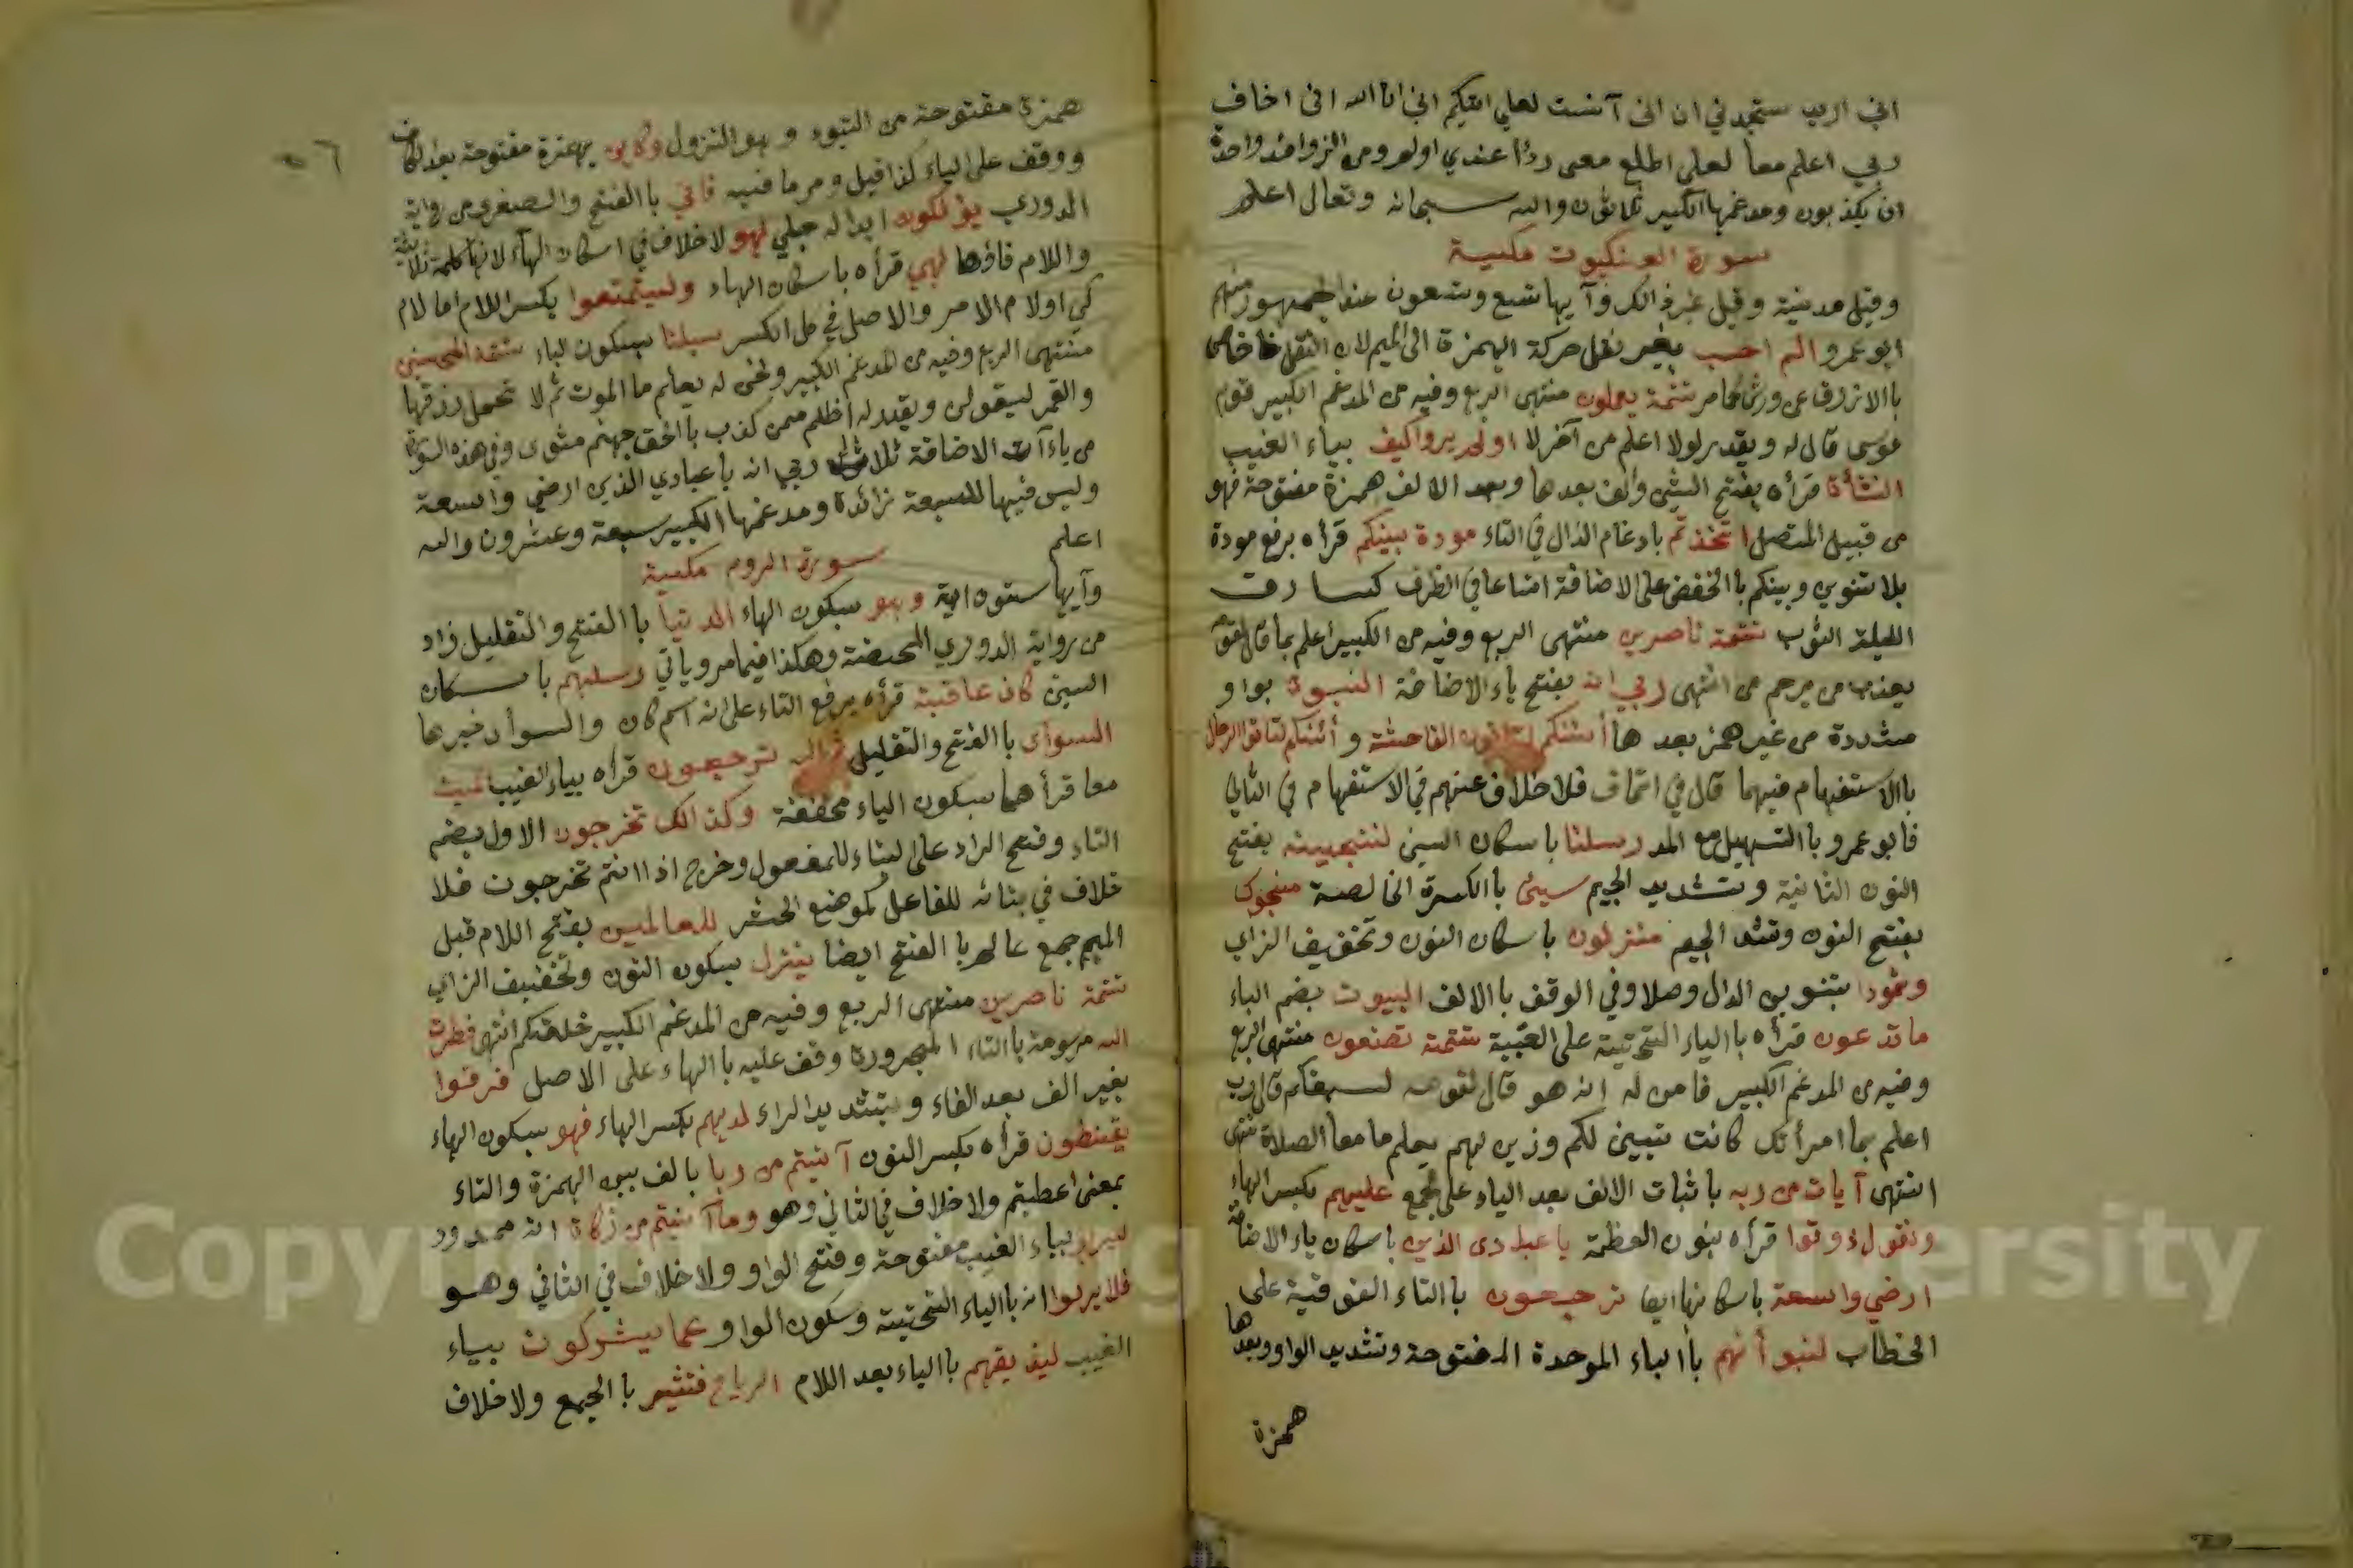 اني اريد ستجدني ان اني آنست لعلي اتيكم اني انا الله اني اخاف
ربي اعلم معا لعلي اطلع معي ردأ عندي اولم ومن الزوائد واحدة
ان يكذبون ومدغمها الكبير ثلاثون والله سبحانه وتعالى اعلم
سورة العنكبوت مكية
وقيل مدنية وقيل غير ذالك وآيها تسع وستعون عند الجمهور منهم
ابو عمرو الم احسب بغير نقل حركة الهمزة الى الميم لان النقل خاص
باالازرق عن ورش كما مر تتمة يعملون منتهى الربع وفيه من المدغم الكبير قوم
موسى قال له ويقدر لولا اعلم من آخر لا اولم يروا كيف بياء الغيب
النشأة قرأه بفتح الشين والف بعدها وبعد الالف همزة مفتوحة فهو
من قبيل المتصل اتخذتم بادغام الذال في التاء مودة بينكم قرأه برفع مودة
بلا تنوين وبينكم باالخفض على الاضافة اتساعا في الظرف كيا سارق
الليلة الثوب تتمة ناصرين منتهى الربع وفيه من الكبير اعلم بما قال لقومه
يعذب من يرحم من انتهى ربي انه بفتح ياء الاضافة النبوة بواو
مشددة من غير همز بعد ها أئنكم لتاتون الفاحشة و أئنكم لتاتوا الرجال
باالاستفهام فيهما قال في اتحاف فلا خلاف عنهم في الاستفهام في الثاني
فابو عمرو باالتسهيل مع المد رسلنا باسكان السين لننجينه بفتح
النون الثانية وتشديد الجيم سيئ باالكسرة الخالصة منجوك
بفتح النون وتشد الجيم منزلون باسكان النون وتخفيف الزاي
وثمودا بتنوين الدال وصلا وفي الوقف باالالف البيوت بضم الباء
ما تدعون قرأه باالياء التحتية على الغيبة تتمة تصنعون منتهى الربع
وفيه من المدغم الكبير فامن له انه هو قال لقومه سبقكم قال رب
اعلم بما امرأتك كانت تبين لكم وزين لهم يعلم ما معا الصلاة تنهى
انتهى آيات من ربه باثبات الالف بعد الياء على الجمع عليهم بكسر الهاء
ونقول ذوقوا قرأه بنون العظمة يا عبادي الذين باسكان ياء الاضافة
ارضي واسعة باسكانها ايضا ترجعون باالتاء الفوقية على
الخطاب لنبوأنهم باالباء الموحدة المفتوحة وتشديد الواو وبعدها
همزة
همزة مفتوحة من التبوء وهو النزول وكاين بهمزة مفتوحة بعد الكاف
ووقف على الياء كذا قيل ومر ما فيه فانى باالفتح والصغرى من رواية
الدوري يؤفكون ابداله جلي لهو لا خلاف في اسكان الهاء لانها كلمة ثلاثية
واللام فاؤها لهي قرأه باسكان الهاء وليتمتعوا بكسر اللام اما لام
كي اولام الامر والاصل في كل الكسر سبلنا بسكون الباء تتمة المحسنين
منتهى الربع وفيه من المدغم الكبير ونحن له يعلم ما الموت ثم لا تحمل رزقها
والقمر ليقولن ويقدر له اظلم ممن كذب باالحق جهنم مثوى وفي هذه السورة
من ياءآت الاضافة ثلاث ربي انه يا عبادي الذين ارضي واسعة
وليس فيها للسبعة زائدة ومدغمها الكبير سبعة وعشرون والله
اعلم
سورة الروم مكية
وآيها ستون اية وهو بسكون الهاء الدنيا باالفتح والتقليل زاد
من رواية الدوري المحضة وهكذا فيما مر وياتي رسلهم باسكان
السين كان عاقبة قرأه برفع التاء على انه اسم كان والسوأى خبرها
السوأى باالفتح والتقليل ترجعون قرأه بياء الغيب الميت
معا قرأهما بسكون الياء مخففة وكذالك تخرجون الاول بضم
التاء وفتح الراء على البناء للمفعول وخرج اذا انتم تخرجون فلا
خلاف في بنائه للفاعل كموضع الحشر للعالمين بفتح اللام قبل
الميم جمع عالم باالفتح ايضا ينزل بسكون النون وتخفيف الزاي
تتمة ناصرين منتهى الربع وفيه من المدغم الكبير خلقكم انتهى فطرت
الله مرسومة باالتاء المجرورة وقف عليه باالهاء على الاصل فرقوا
بغير الف بعد الفاء وبتشديد الراء لديهم بكسر الهاء فهو بسكون الهاء
يقنطون قرأه بكسر النون آتيتم من ربا بالف بين الهمزة والتاء
بمعنى اعطيتم ولا خلاف في الثاني وهو وما آتيتم من زكاة انه ممدود
ليربو بياء الغيب مفتوحة وفتح الواو ولا خلاف في الثاني وهو
فلا يربوا انه باالياء التحتية وسكون الواو عما يشركون بياء
الغيب ليذيقهم باالياء بعد اللام الرياح فتثير باالجمع ولا خلاف